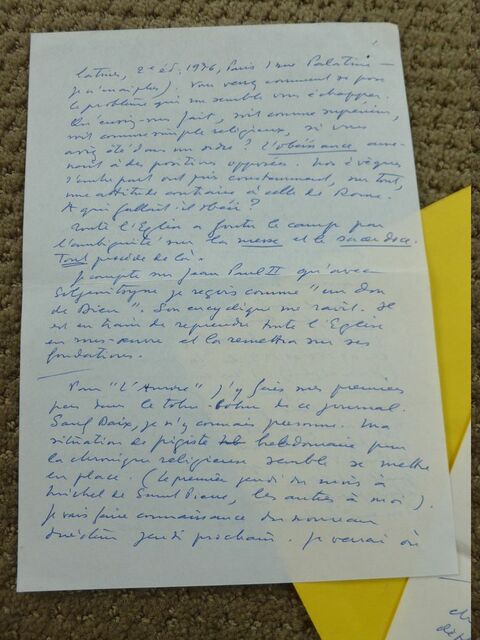 latines, 2e éd. 1976, Paris 1 rue Palatine —
je n'en ai plus). Vous verrez comment se pose
le problème qui me semble vous échapper.
Qu'auriez-vous fait, soit comme supérieur,
soit comme simple religieux, si vous
aviez été dans un ordre ? L'obéissance ame-
nait à des positions opposées. Nos évêques
d'autre part ont pris constamment, sur tout,
une attitude contraire à celle de Rome.
A qui fallait-il obéir ?
Toute l'Eglise a foutu le camp par
l'ambiguité sur la messe et le sacerdoce.
Tout procède de là.
Je compte sur Jean Paul II qu'avec
Soljenitsyne je reçois comme "un don
de Dieu". Son encyclique me ravit. Il
est en train de reprendre toute l'Eglise
en sous-œuvre et la remettra sur ses
fondations.
Pour "L'Aurore" j'y fais mes premiers
pas dans le tohu-bohu de ce journal.
Sauf Daix, je n'y connais personne. Ma
situation de pigiste hebdomadaire pour
la chronique religieuse semble se mettre
en place. (Le premier jeudi du mois à
Michel de Saint Pierre, les autres à moi).
Je vais faire connaissance du nouveau
directeur jeudi prochain. Je verrai où